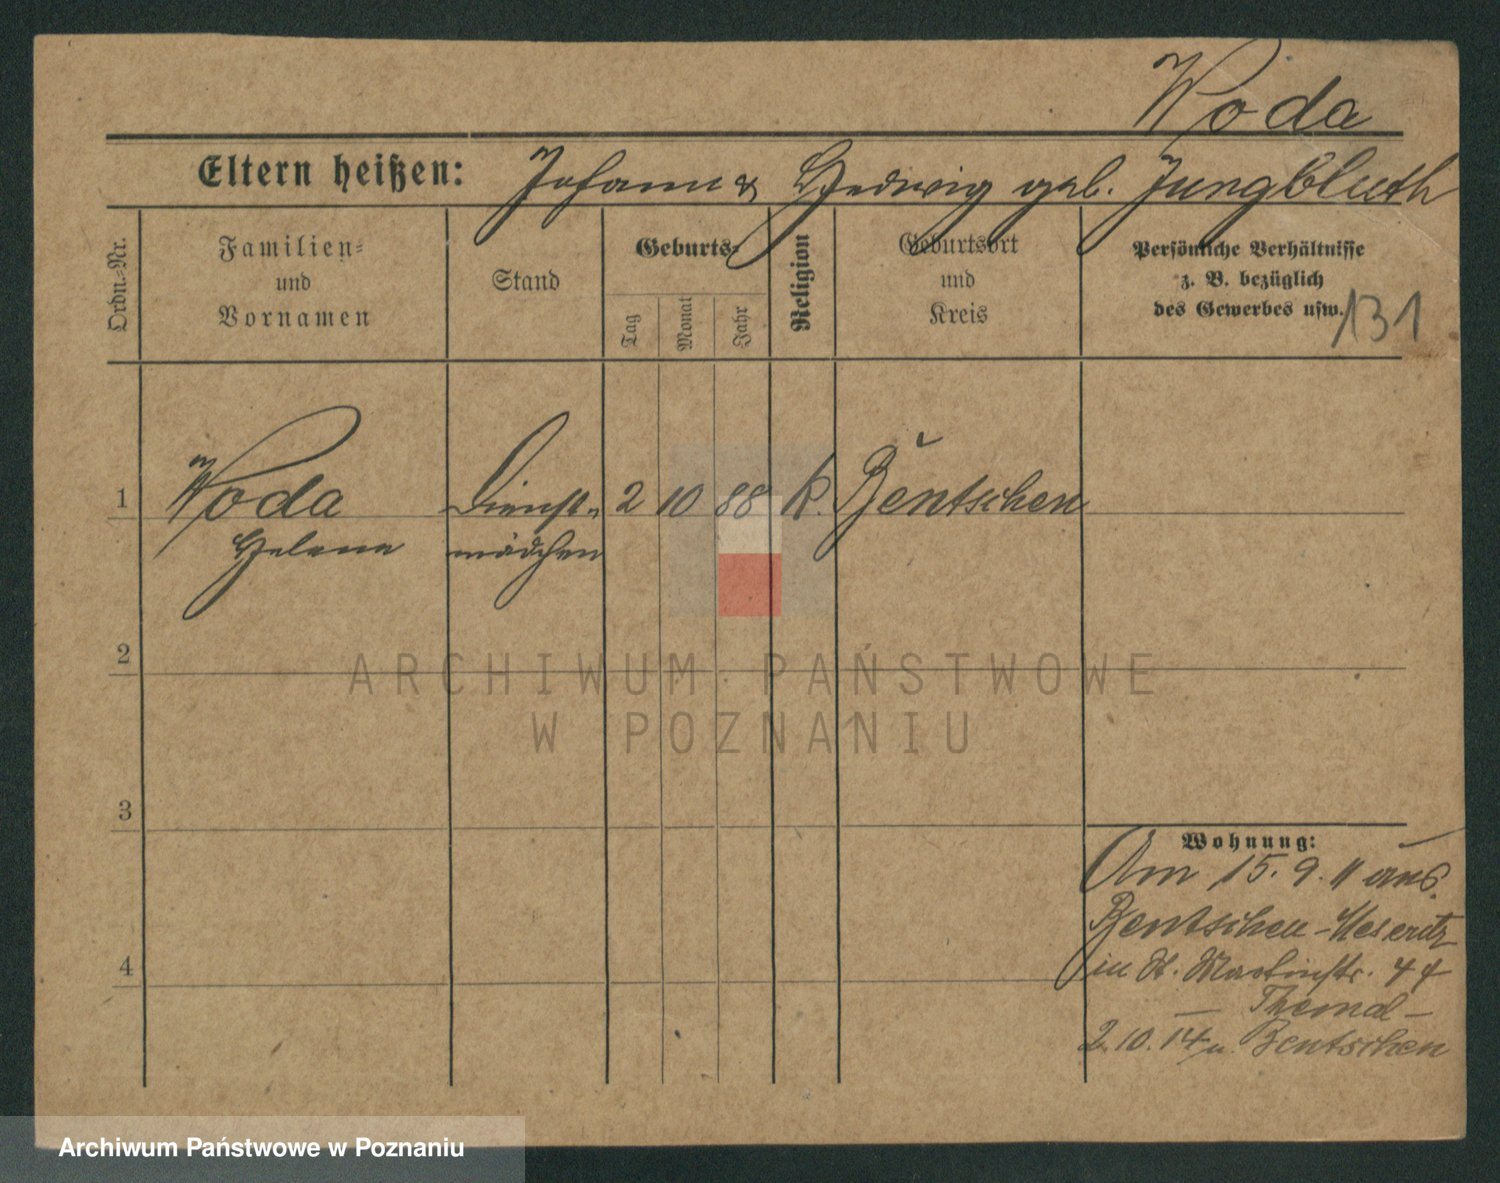 Woda
Eltern heißen: Johann & Hedwig geb. Jungbluth
Ordn.-Nr.
Familien-
und
Vornamen
Stand
Geburts-
Tag
Monat
Jahr
Religion
Geburtsort
und
Kreis
Persönliche Verhältnisse
z. B. bezüglich
des Gewerbes usw.
131
1 Woda Dienst- 2 10 88 k. Bentschen
Helene mädchen
2
3
4
Wohnung:
Am 15. 9. 11 aus
Bentschen-Meseritz
in St. Martinstr. 44
— Themal —
2. 10. 14 n. Bentschen
ARCHIWUM PAŃSTWOWE
W POZNANIU
Archiwum Państwowe w Poznaniu